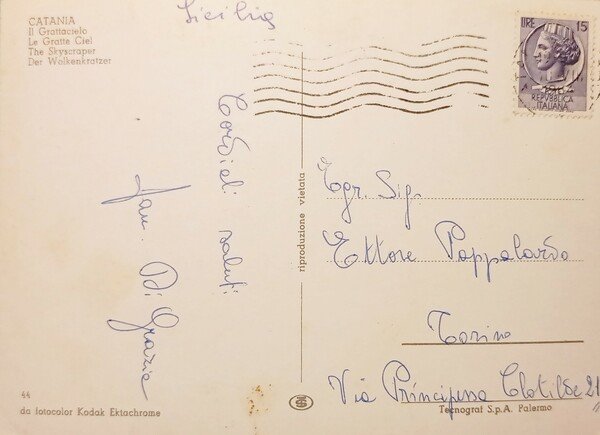 Sicilia
CATANIA
Il Grattacielo
Le Gratte Ciel
The Skyscraper
Der Wolkenkratzer
LIRE 15
REPVBBLICA
ITALIANA
Cordiali saluti
Fam. Di Grazia
riproduzione vietata
Egr. Sig.
Ettore Pappalardo
Torino
Via Principessa Clotilde 21
44
da fotocolor Kodak Ektachrome
Tecnograf S.p.A. Palermo